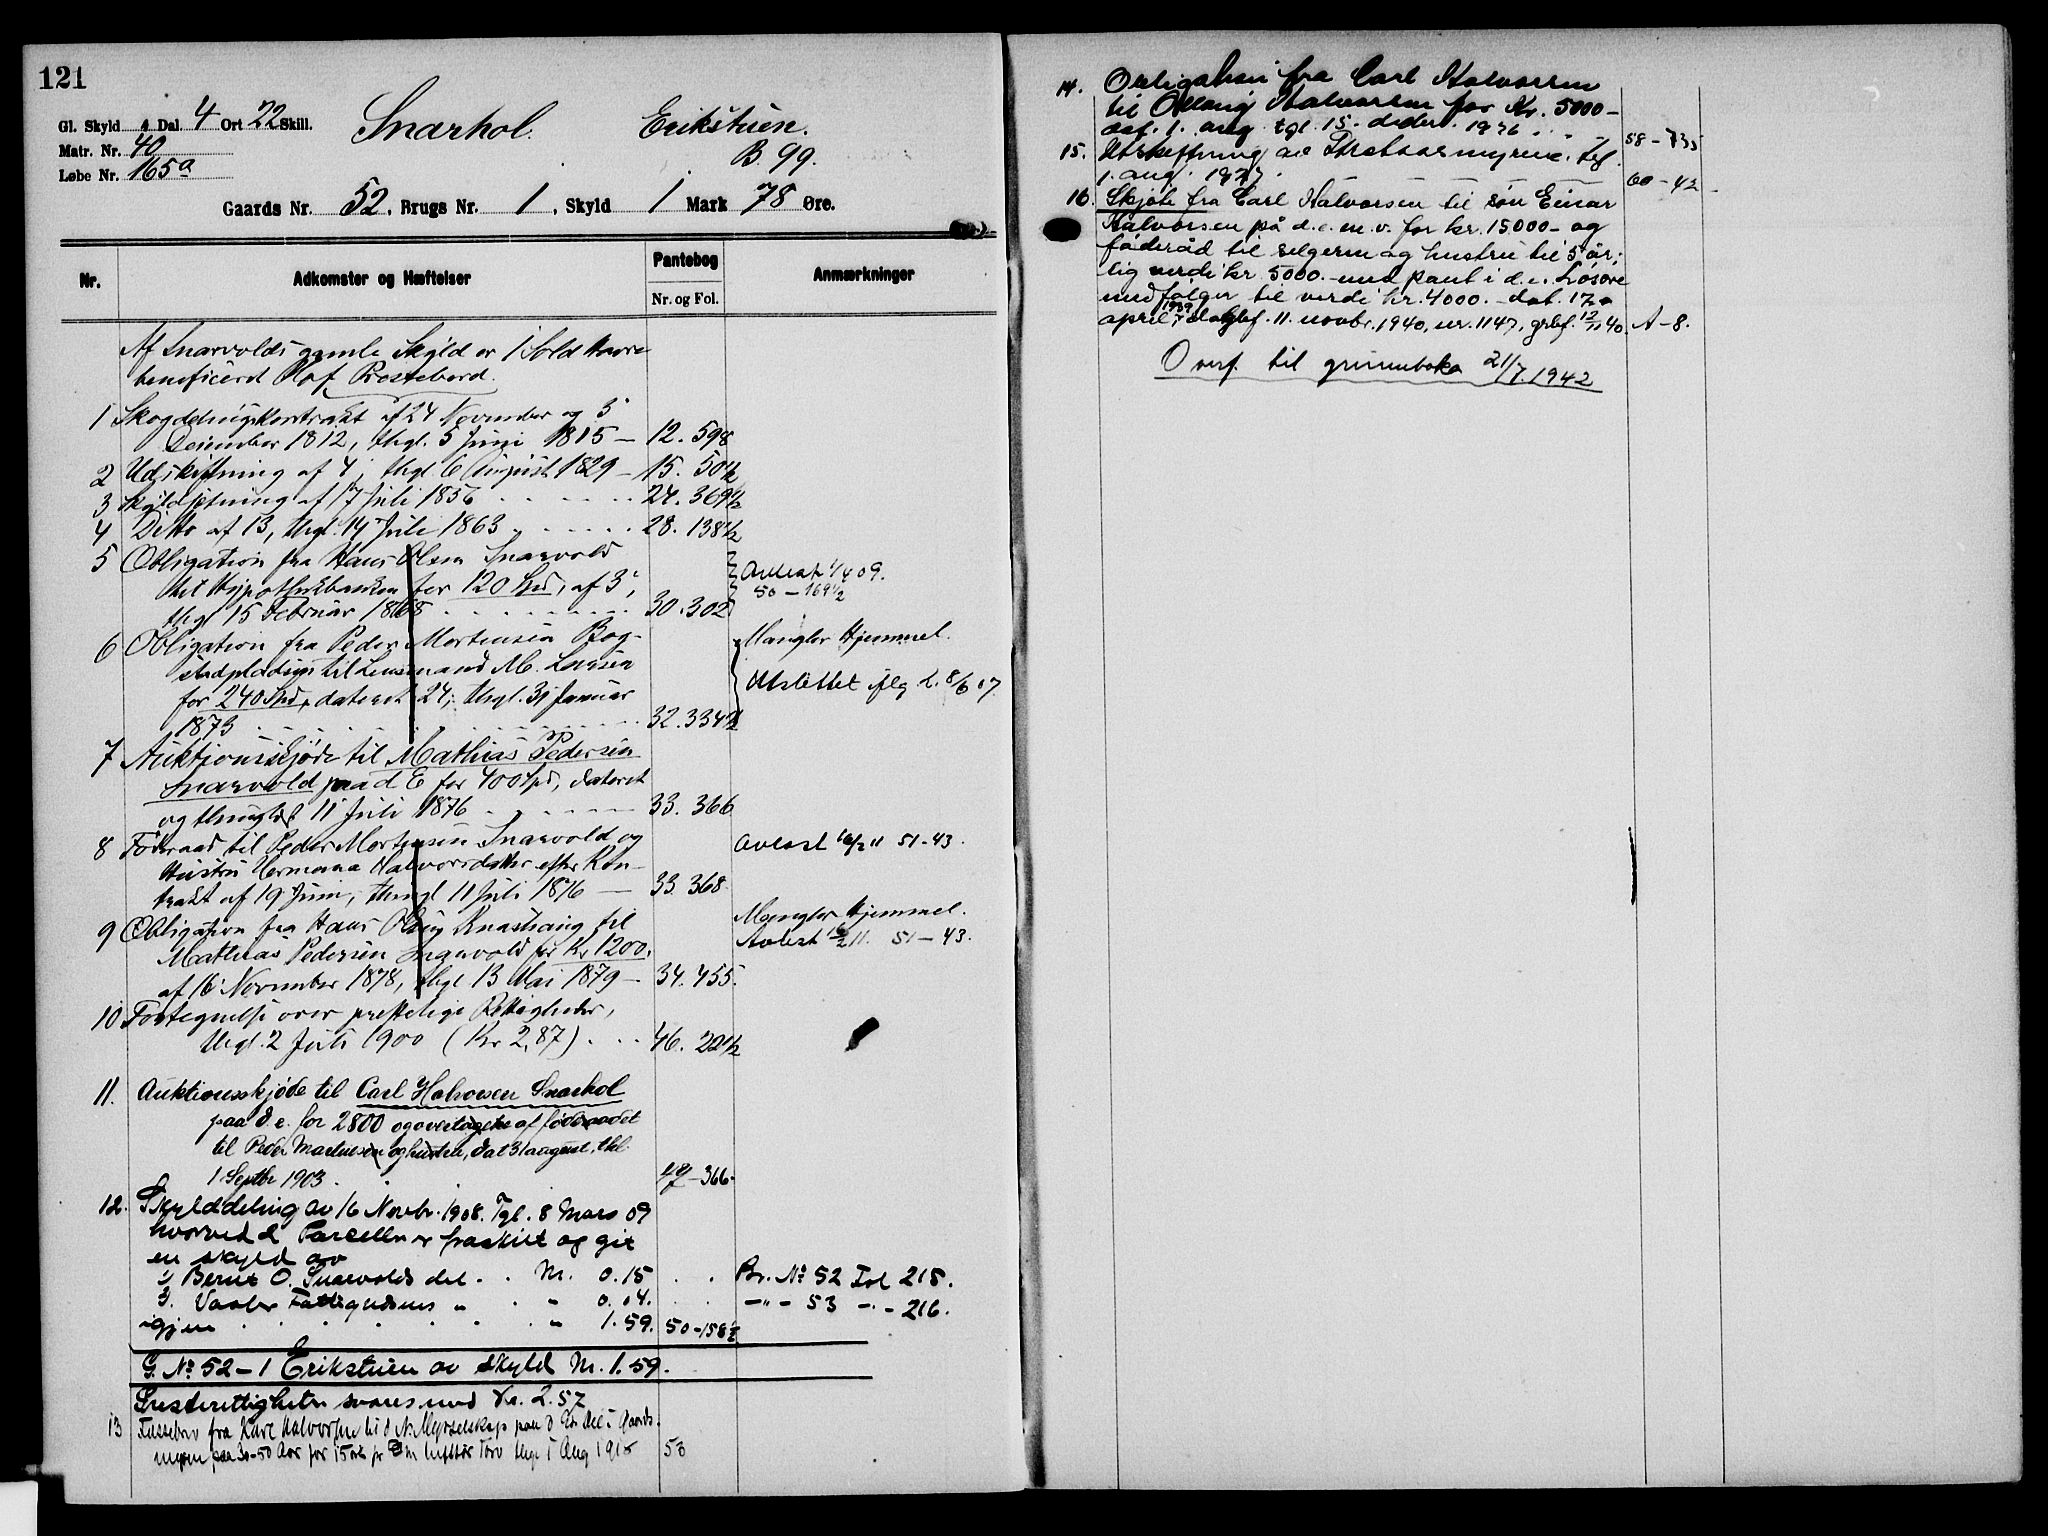 121
Gl. Skyld 4 Dal. 4 Ort 22 Skill.
Matr. Nr. 40
Løbe Nr. 165a
Snarhol. Erikstuen.
B. 99.
Gaards Nr. 52, Brugs Nr. 1, Skyld 1 Mark 78 Øre.
Nr. Adkomster og Hæftelser Pantebog Anmærkninger
Nr. og Fol.
Af Snarvolds gamle Skyld er 1 Sold
beneficeret Olaf Prestebord.
1 Skogdelingskontrakt af 24 November og 3
December 1812, thgl. 5 Juni 1815 — 12. 598
2 Udskiftning af 4, thgl. 6 August 1829 — 15. 50½
3 Skyldsætning af 17 Juli 1856 24. 369½
4 Ditto af 13, thgl. 14 Juli 1863 28. 138½
5 Obligation fra Hans Olsen Snarvold
til Hypothekbanken for 120 Spd, af 3,
thgl 15 Februar 1868 30. 302
Avlest 1/4 09.
50 – 169½
6 Obligation fra Peder Mortensen Bog-
til Lensmand M. Larsen
for 240 Spd, dateret 24, thgl. 31 Januar
1873 32. 334½
Mangler Hjemmel.
Utslettet iflg l. 8/6 07.
7 Auktionsskjøde til Mathias Pedersen
Snarvold paa d E for 400 Spd, dateret
og thinglæst 11 Juli 1876 33. 366
8 Føderaad til Peder Mortensen Snarvold og
Hustru Hermana Halvorsdatter efter Kon-
trakt af 19 Juni, thingl 11 Juli 1876 — 33. 368.
Avlest 16/2 11 51-43.
9 Obligation fra Hans Olsen Knashaug til
Mathias Pedersen Snarvold for Kr 1200,
af 16 November 1878, thgl 13 Mai 1879 — 34. 455.
Mangler Hjemmel.
Avlest 16/2 11. 51-43.
10 Fortegnelse over prestelige Rettigheder,
thgl. 2 Juli 1900 (Kr 2,87) 46. 221½
11. Auktionsskjøde til Carl Halvorsen Snarhol
paa d. e. for 2800 og overtagelse af føderaadet
til Peder Martinsen og hustru, dat 31 august, thl.
1 Septbr 1903. 47-366.
12. Skylddeling av 16 Novbr. 1908. Tgl. 8 Mars 09
hvorved 2 Parceller er fraskilt og git
en skyld av
1) Bernt O. Snarvolds del M. 0.15 Br. No 52 Fol 215.
2. Vaaler Fattigvæsens " " 0.04. —"— 53 —"— 216.
igjen " 1.59. 50-158½
G. No 52-1 Erikstuen av skyld M. 1.59.
Presterettigheter svares med Kr. 2.57
13 Fæstebrev fra Karl Halvorsen til d N. Myrselskap paa d Es del i Gaards-
myren paa 30-50 Aar for 15 øre pr m lufttør Torv thgl 1 Aug 1916 53
14. Obligation fra Carl Halvorsen
til Halvorsen for Kr. 5000 –
dat. 1. aug. tgl. 15. decbr. 1936 58-735
15. Utskiftning av tgl.
1. aug. 1937. 60-42
16. Skjøte fra Carl Halvorsen til søn Einar
Halvorsen på d. e. m. v. for kr. 15000 – og
føderåd til selgeren og hustru til 5 år-
lig verdi kr. 5000. – med pant i d. e. Løsøre
medfølger til verdi kr. 4000. – dat. 17.
april 1939, dagbf. 11. novbr. 1940, nr. 1147, grbf. 12/11 40. A-8.
Overf. til grunnboka 21/7. 1942